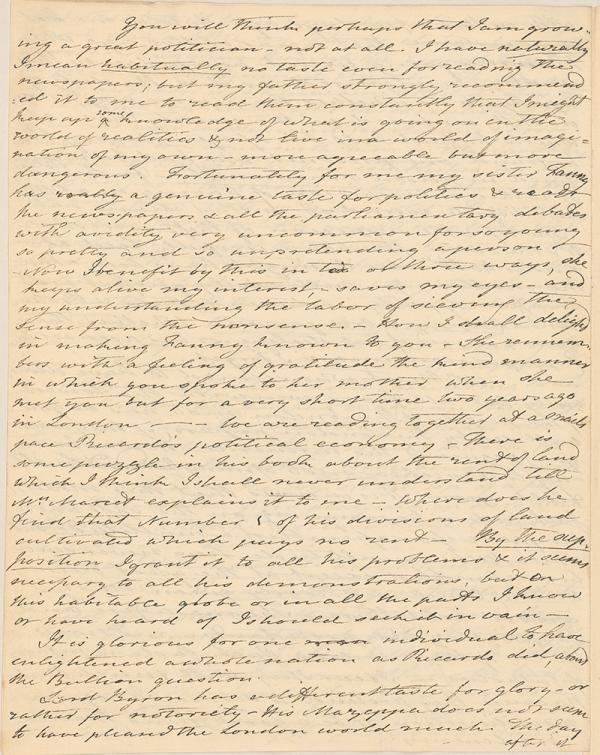 You will think perhaps that I am grow-
ing a great politician - not at all. I have naturally
I mean habitually no taste even for reading the
newspapers; but my father strongly recommend
:ed it to me to read them constantly that I might
keep up some knowledge of what is going on in the
world of realities & not live in a world of imagi-
nation of my own - more agreeable but more
dangerous. Fortunately for me my sister Fanny
has really a genuine taste for politics & reads
the newspapers & all the parliamentary debates
with avidity very uncommon for so young
so pretty and so unpretending a person
Now I benefit by this in two or three ways, she
helps alive my interest - saves my eyes - and
my understanding the labor of sieving the
sense from the nonsense. - How I shall delight
in making Fanny known to you - She remem-
bers with a feeling of gratitude the kind manner
in which you spoke to her mother when she
met you but for a very short time two years ago
in London —— We are reading together at a snails
pace Ricardo's political economy - there is
some puzzle in his book about the rent of land
which I think I shall never understand till
Mrs Marcet explains it to me - Where does he
find that Number of his divisions of land
cultivated which pays no rent - By the sup-
position I grant it to all his problems & it seems
necessary to all his demonstrations, but on
this habitable globe or in all the parts I know
or have heard of I should seek it in vain -
It is glorious for one man individual to have
enlightened a whole nation as Ricardo did about
the Bullion question.
Lord Byron has a different taste for glory - or
rather for notoriety - His Mazeppa does not seem
to have pleased the London world much The day
after it